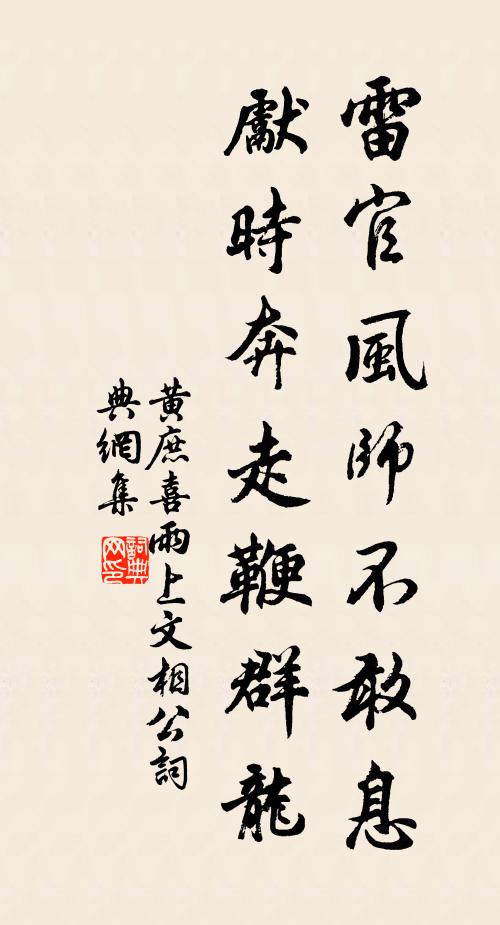 雷官風師不敢息
獻時奔走鞭群龍
黃庶喜雨上文相公詞
典網集
詞典网印